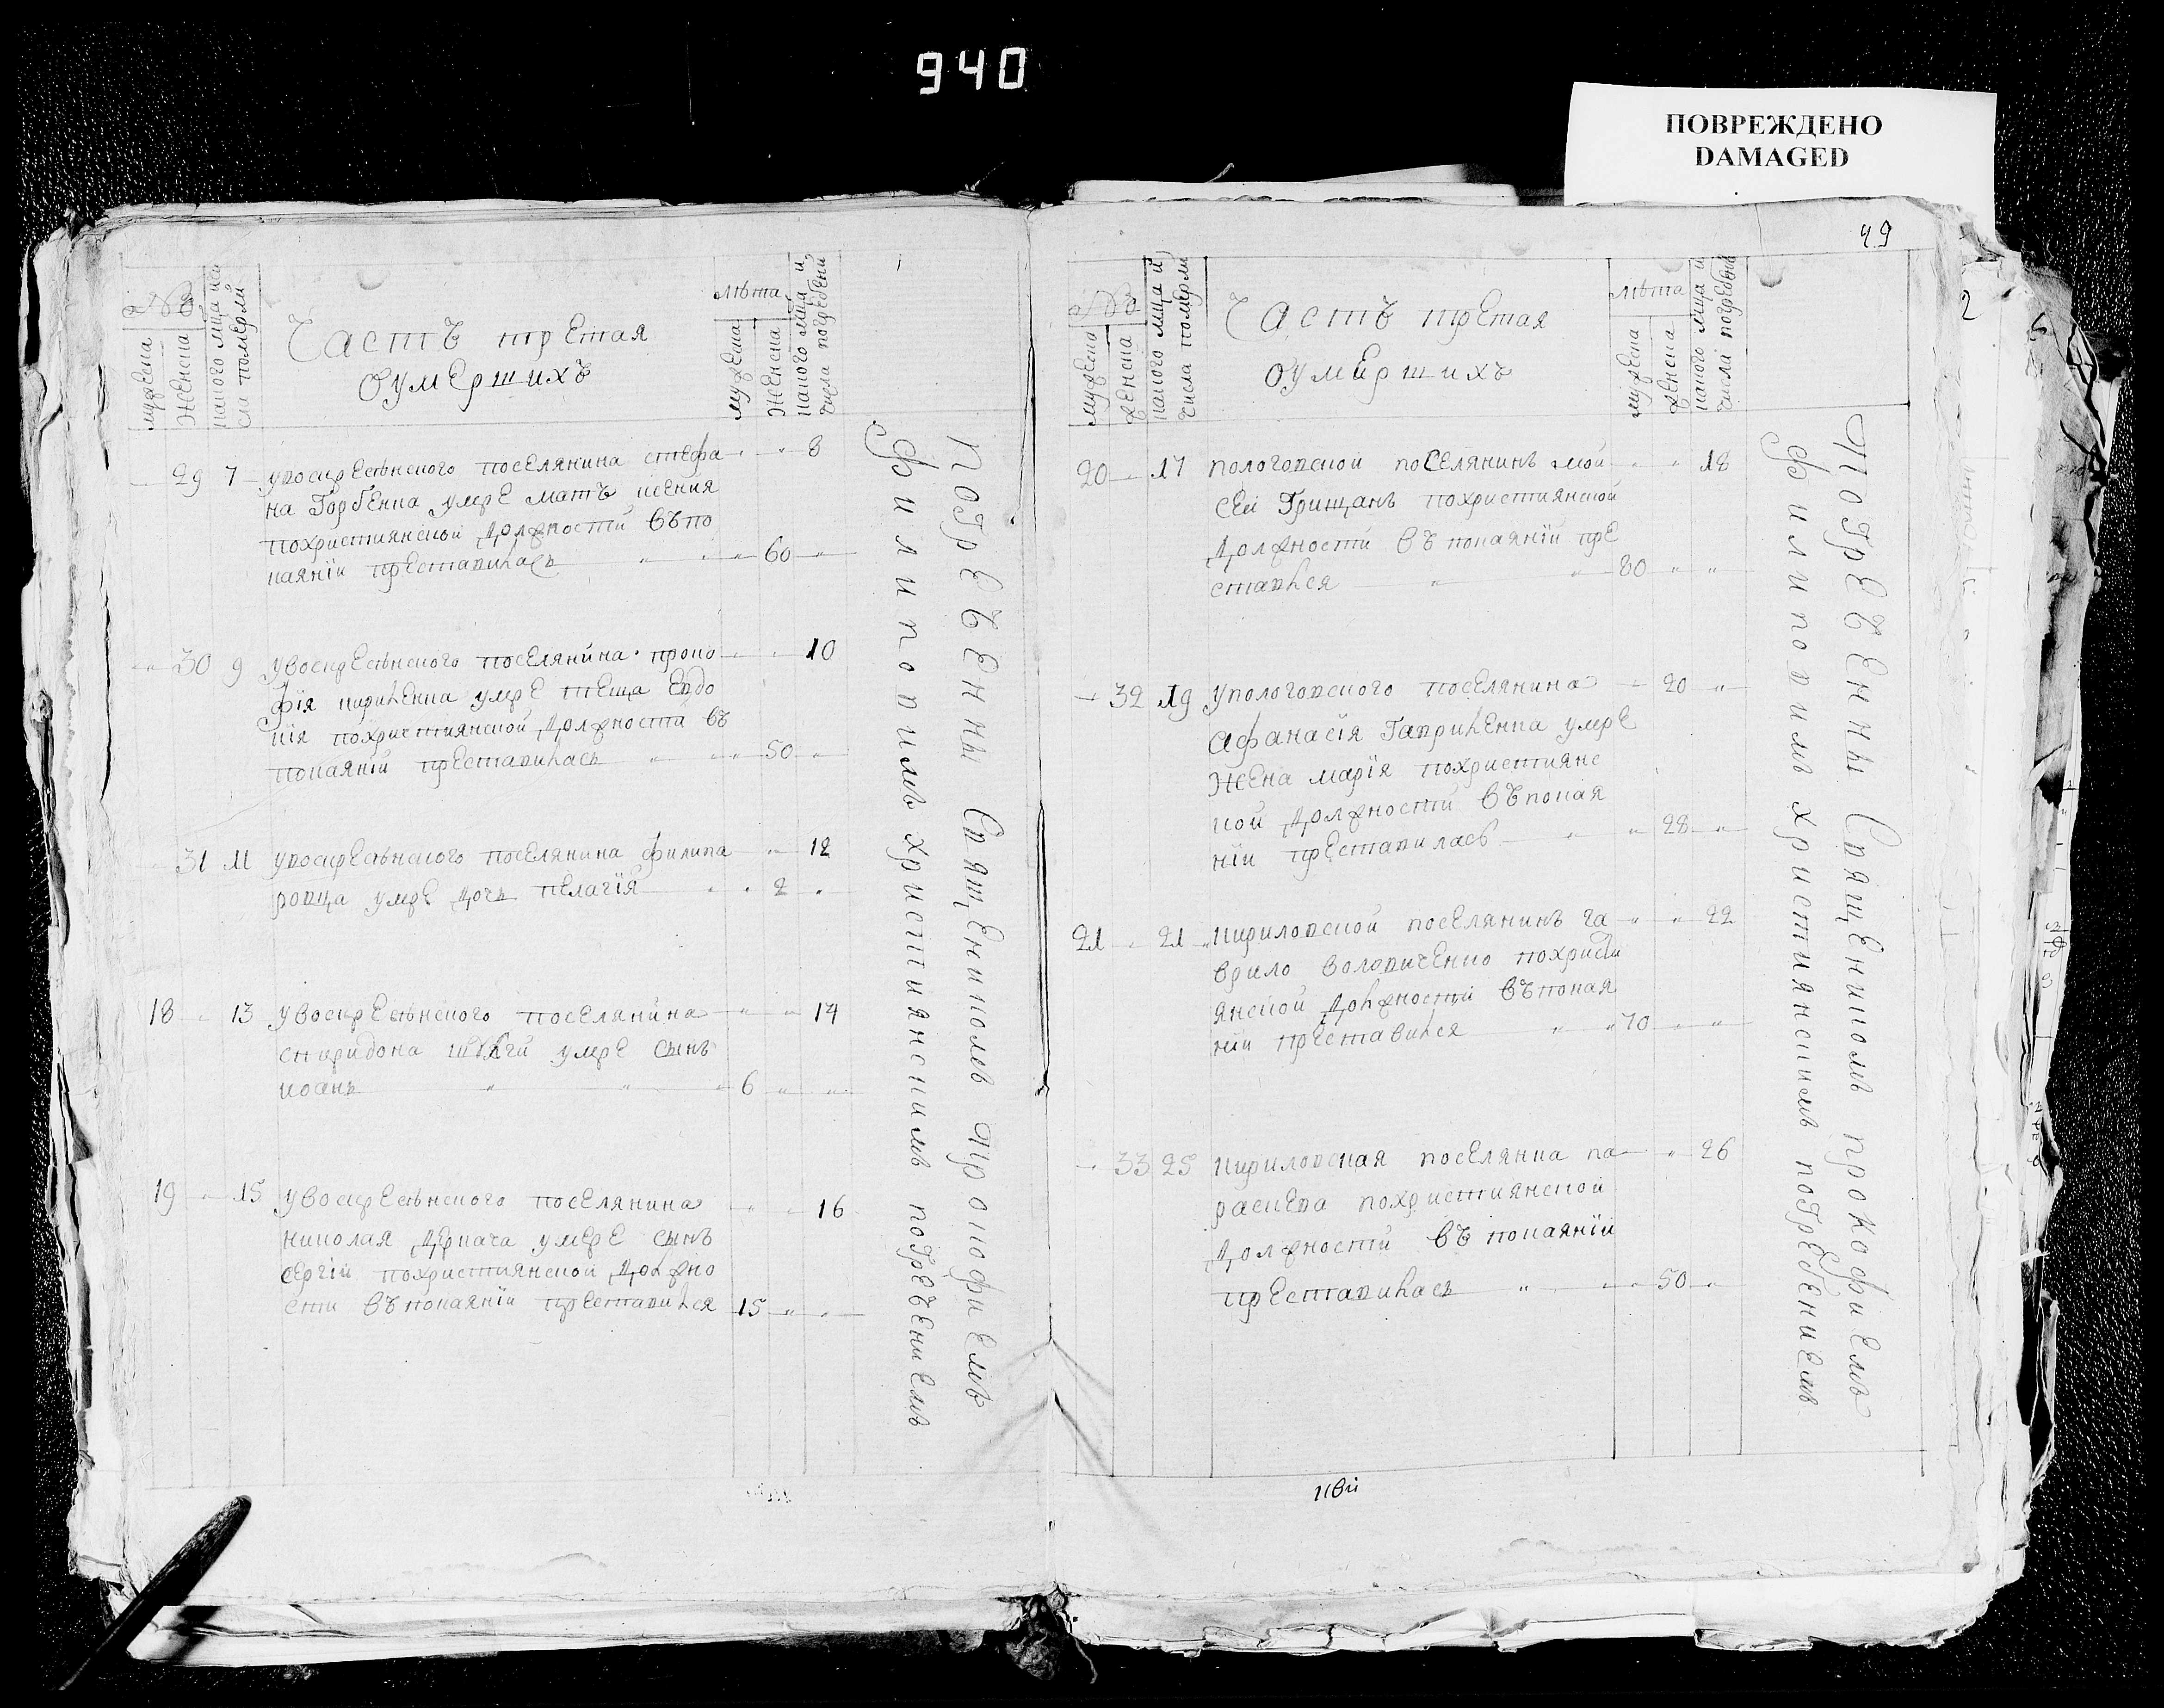 940
ПОВРЕЖДЕНО
DAMAGED
№
мужеска
женска
лѣта
мужеска
женска
Часть третая
Оумершихъ
29 7 увоскресѣнского поселянина стефа 8
на Горбенка умре мать ксения
похристиянской должности въ по
каянїи преставилась 60
30 9 увоскресѣнского поселянина проко 10
фїя кириленка умре теща Евдо
кїя похристиянской должности въ
покаянїи преставилась 50
31 11 увоскресѣнского поселянина филипа 12
ровца умре дочь пелагїя 2
18 13 увоскресѣнского поселянина 14
спиридона умре сынъ
иоанъ 6
19 15 увоскресѣнского поселянина 16
николая деркача умре сынъ
сергїй похристиянской должно
сти въ покаянїи преставился 15
Погребенны Священникомъ Прокофиемъ
Филиповимъ християнскимъ погребениемъ
49
№
мужеска
женска
лѣта
мужеска
женска
Часть третая
Оумершихъ
20 17 пологовской поселянинъ мой 18
сей Грищанъ похристиянской
должности въ покаянїи пре
ставился 80
32 19 упологовского поселянина 20
Афанасїя Гавриленка умре
жена марїя похристиянс
кой должности въ покая
нїи преставилась 28
21 21 кириловской поселянинъ га 22
врило воловиченко похристи
янской должности въ покая
нїи преставился 70
33 25 кириловская поселянка па 26
раскева похристиянской
должности въ покаянїи
преставилась 50
Погребенны Священникомъ прокофиемъ
Филиповимъ християнскимъ погребениемъ